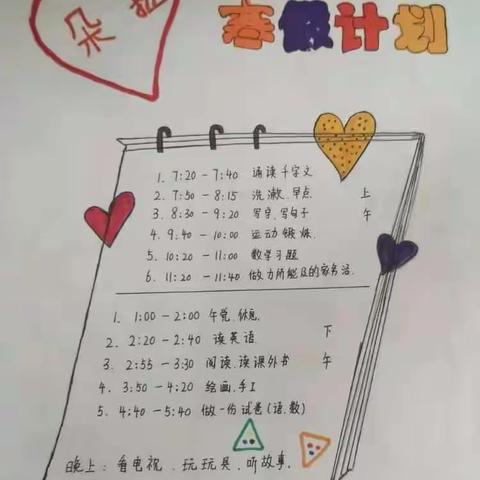 朵
寒假计划
1. 7:20 - 7:40 诵读千字文
2. 7:50 - 8:15 洗漱、早点
上
3. 8:30 - 9:20 写字、写句子
午
4. 9:40 - 10:00 运动锻炼.
5. 10:20 - 11:00 数学习题
6. 11:20 - 11:40 做力所能及的家务活.
1. 1:00 - 2:00 午觉.休息.
2. 2:20 - 2:40 读英语
下
3. 2:55 - 3:30 阅读、读课外书
午
4. 3:50 - 4:20 绘画.手工
5. 4:40 - 5:40 做一份试卷(语.数)
晚上: 看电视、玩玩具、听故事.